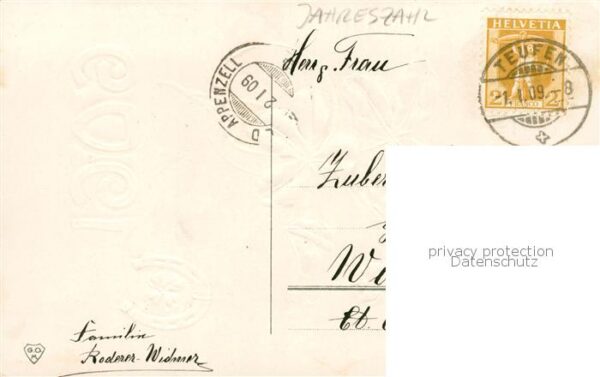 JAHRESZAHL
HELVETIA
TEUFEN
-1.1.09. 8
2 FRANCO 2
APPENZELL
2 I 09
Herr Frau
1909
Zuber
privacy protection
Datenschutz
Ct.
Familie
Roderer-Widmer
G.O.
M